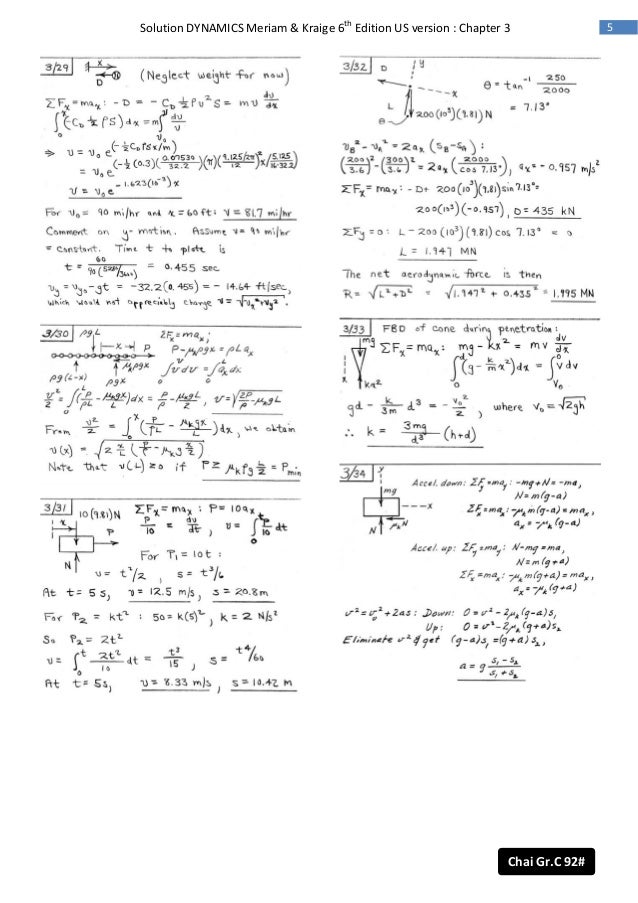 Solution DYNAMICS Meriam & Kraige 6th Edition US version : Chapter 3
5
3/29
x
D
(Neglect weight for now)
ΣFx = max : - D = - C_D ½ ρ v² S = m v dv/dx
∫(-C_D ½ ρ S) dx = m ∫ dv/v
⇒ v = v₀ e^(-½ C_D ρ S x/m)
= v₀ e^(-½ (0.3)(0.07530/32.2)(π)(9.125/2π / 12)² x / (5.125/16·32.2))
v = v₀ e^(-1.623(10⁻³) x)
For v₀ = 90 mi/hr and x = 60 ft : v = 81.7 mi/hr
Comment on y-motion. Assume v = 90 mi/hr
= constant. Time t to plate is
t = 60 / 90(5280/3600) = 0.455 sec
vy = vy₀ - gt = -32.2(0.455) = - 14.64 ft/sec,
which would not appreciably change v = √(vx² + vy²).
3/30
ρgL
x
P
μkρgx
ρg(L-x)
ρgx
ΣFx = max ;
P - μkρgx = ρL ax
∫v dv = ∫ax dx
v²/2 = ∫(P/ρL - μkgx/L) dx = P/ρ - μkgL/2 , v = √(2P/ρ - μkgL)
From v²/2 = ∫(P/ρL - μkgx/L) dx , we obtain
v(x) = √(2 x/L (P/ρ - μkg x/2))
Note that v(L) ≥ 0 if P ≥ μkρg L/2 = Pmin
3/31
10(9.81)N
x
P
N
ΣFx = max : P = 10ax
P/10 = dv/dt , v = ∫ P/10 dt
For P₁ = 10t :
v = t²/2 , s = t³/6
At t = 5 s, v = 12.5 m/s , s = 20.8 m
For P₂ = kt² : 50 = k(5)² , k = 2 N/s²
So P₂ = 2t²
v = ∫ 2t²/10 dt = t³/15 , s = t⁴/60
At t = 5s, v = 8.33 m/s , s = 10.42 m
3/32
D
y
x
L
θ
200(10³)(9.81) N
θ = tan⁻¹ 250/2000
= 7.13°
vB² - vA² = 2ax (sB - sA) :
(200/3.6)² - (300/3.6)² = 2ax (2000/cos 7.13°), ax = - 0.957 m/s²
ΣFx = max : - D + 200(10³)(9.81) sin 7.13° =
200(10³)(-0.957), D = 435 kN
ΣFy = 0 : L - 200(10³)(9.81) cos 7.13° = 0
L = 1.947 MN
The net aerodynamic force is then
R = √(L² + D²) = √(1.947² + 0.435²) = 1.995 MN
3/33
FBD of cone during penetration :
mg
x
kx²
ΣFx = max : mg - kx² = m v dv/dx
∫(g - k/m x²) dx = ∫ v dv
gd - k/3m d³ = - v₀²/2 , where v₀ = √2gh
∴ k = 3mg/d³ (h+d)
3/34
y
mg
x
N
μkN
Accel. down: ΣFy = may : -mg + N = -ma,
N = m(g-a)
ΣFx = max : -μk m(g-a) = max ,
ax = -μk (g-a)
Accel. up: ΣFy = may : N - mg = ma,
N = m(g+a)
ΣFx = max : -μk m(g+a) = max ,
ax = -μk (g+a)
v² = v₀² + 2as : Down: 0 = v² - 2μk(g-a)s₁
Up: 0 = v² - 2μk(g+a)s₂
Eliminate v² & get (g-a)s₁ = (g+a)s₂ ,
a = g (s₁ - s₂)/(s₁ + s₂)
Chai Gr.C 92#